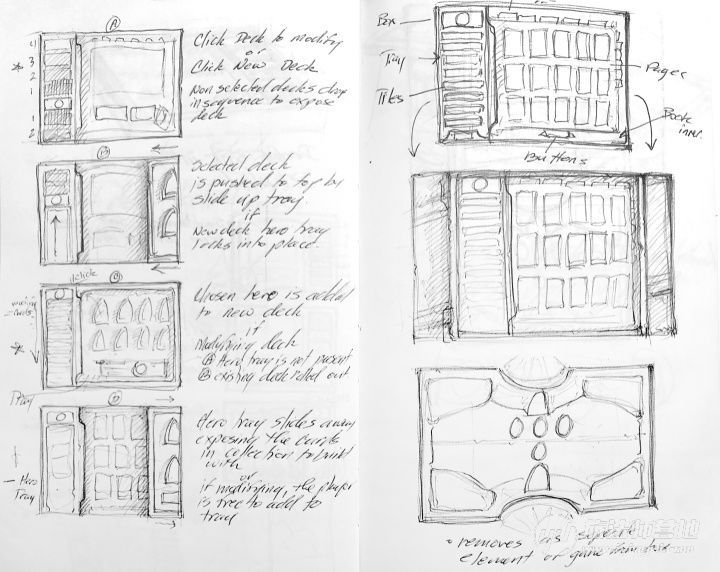 A
Click Deck to modify
or
Click New Deck
Non selected decks drop
in sequence to expose
deck
4
3
2
1
1
2
B
Selected deck
is pushed to top by
slide up tray
if
New deck hero tray
locks into place.
click
C
Chosen hero is added
to new deck
if
Modifying deck
A Hero tray is not present
B existing deck rolled out
Tray
D
Hero tray slides away
exposing the cards
in collection to build
with
or
if modifying, the player
is free to add to
tray
Hero
Tray
Box
Tray
Tiles
Pages
Book
Buttons
* removes as separate
element or game from box